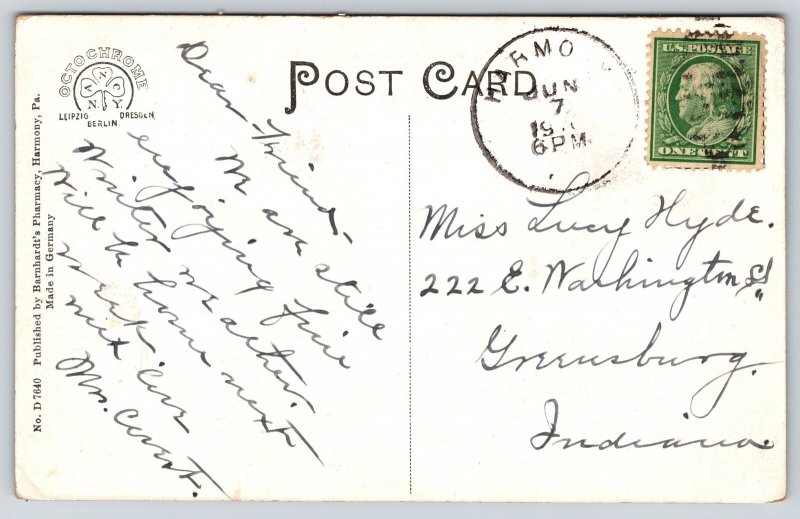 OCTOCHROME
ANO
NY
LEIPZIG DRESDEN
BERLIN.
POST CARD.
No. D 7640 Published by Barnhardt's Pharmacy, Harmony, Pa.
Made in Germany
HARMO
JUN
7
6 PM
U.S. POSTAGE
ONE CENT
Dear Friend -
We are still
enjoying fine
Winter weather.
Will be home next
week
Mrs.
Miss Lucy Hyde.
222 E. Washington St
Greensburg.
Indiana